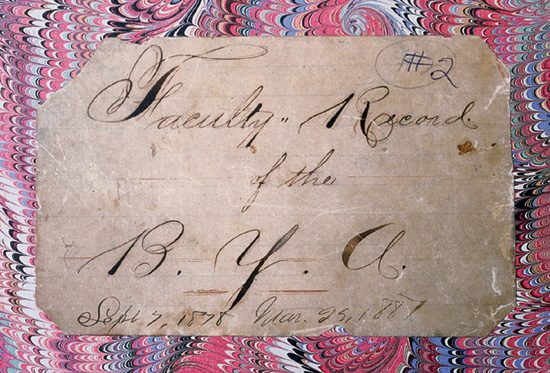 #2
Faculty Record
of the
B. Y. A.
Sept 7, 1878 Mar. 25, 1881